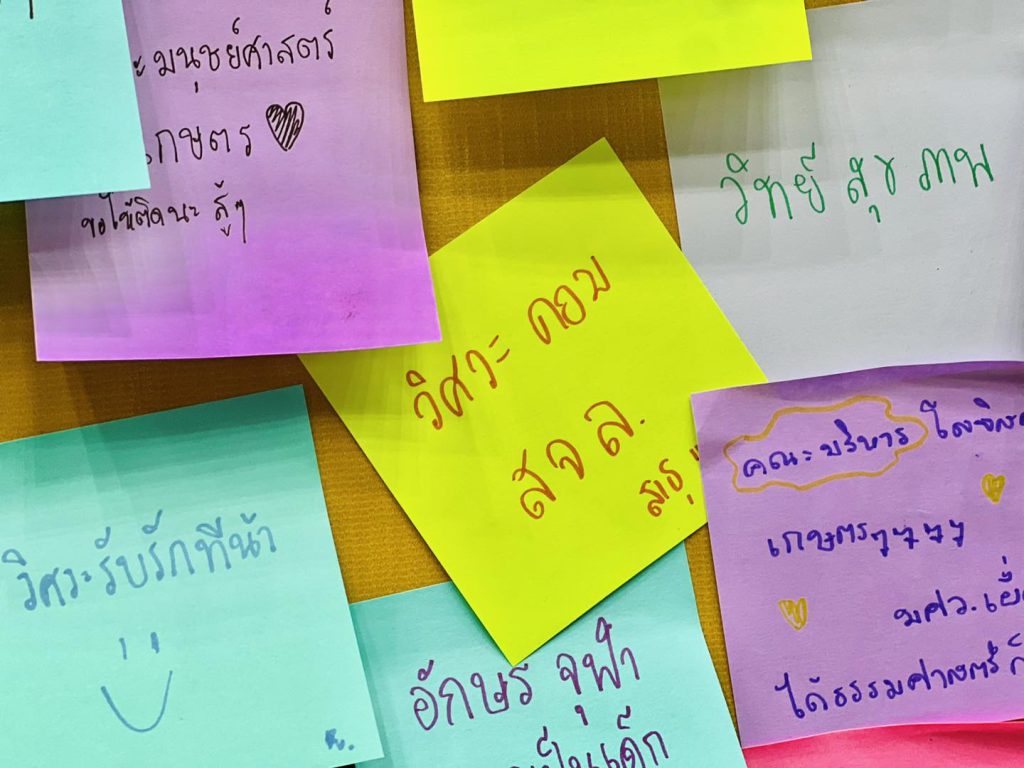 มนุษย์ศาสตร์
เกษตร
ขอให้ติดนะ สู้ๆ
วิทย์ สุขภาพ
วิศวะ คอม
สจล.
สาธุ
วิศวะรับรักทีน้า
คณะบริหาร
เกษตรๆๆๆๆ
มศว.
ได้ธรรมศาสตร์ก็
อักษร จุฬา
เป็นเด็ก